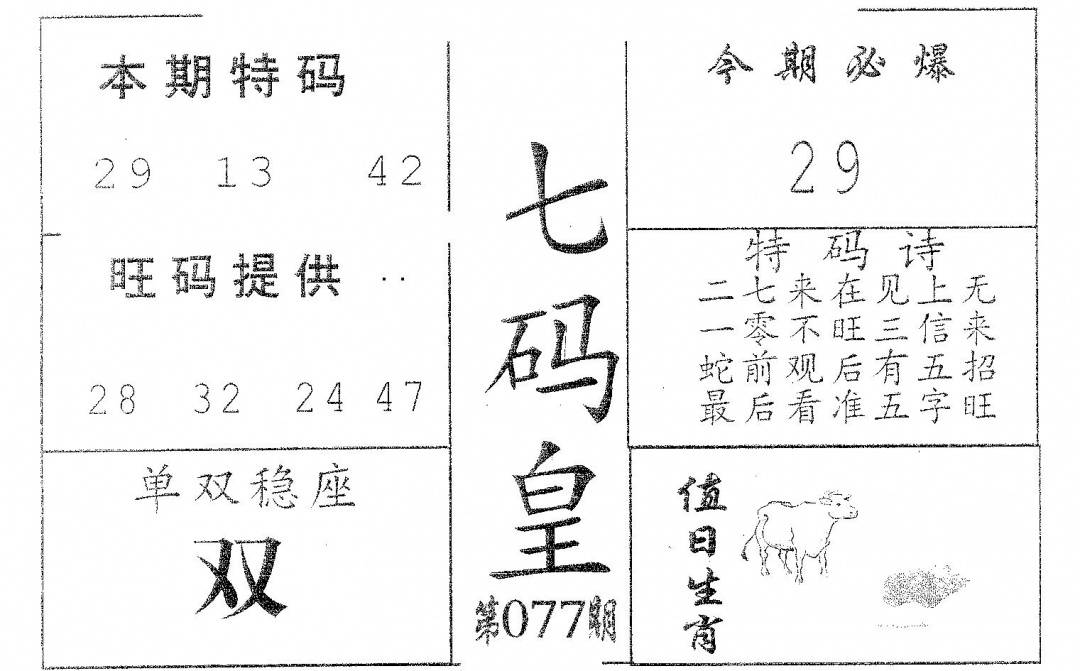 本期特码
29 13 42
旺码提供 ··
28 32 24 47
单双稳座
双
七码皇
第077期
今期必爆
29
特码诗
二七来在见上无
一零不旺三信来
蛇前观后有五招
最后看准五字旺
值日生肖